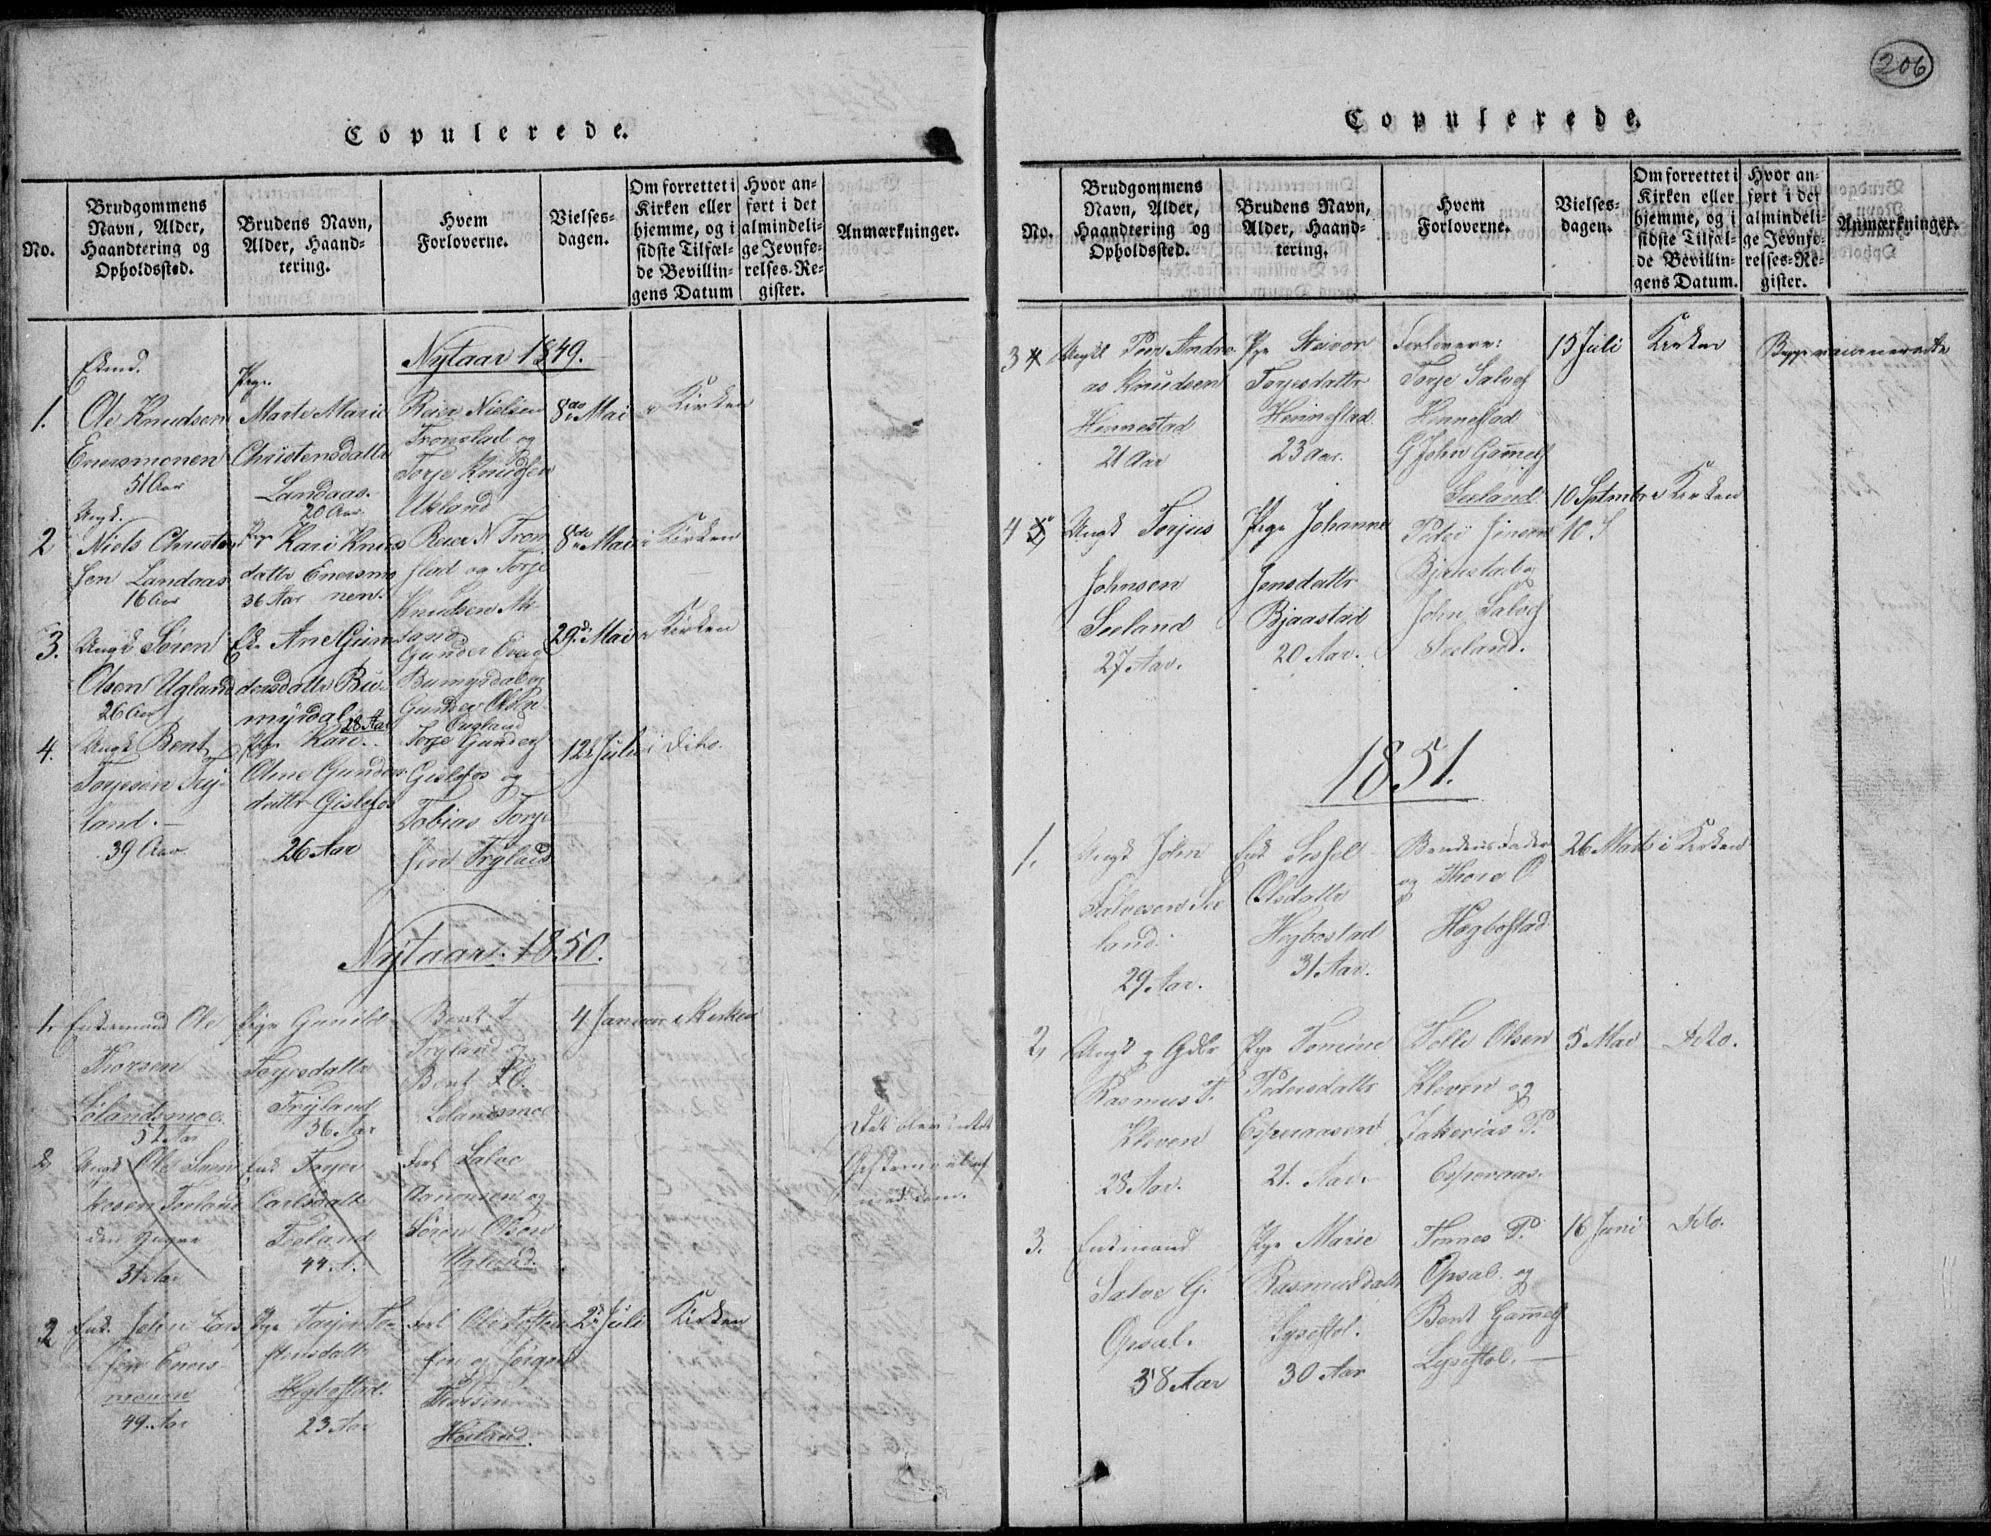 206
Copulerede.
No.
Brudgommens
Navn, Alder,
Haandtering og
Opholdssted.
Brudens Navn,
Alder, Haand-
tering.
Hvem
Forloverne.
Vielses-
dagen.
Om forrettet i
Kirken eller
hjemme, og i
sidste Tilfæl-
de Bevillin-
gens Datum
Hvor an-
ført i det
almindeli-
ge Jevnfø-
relses-Re-
gister.
Anmærkninger.
Nytaar 1849.
1.
Ekmd.
Ole Knudsen
Enersmonen
51 Aar
Pige.
Marte Marie
Christensdattr
Landaas.
20 Aar
Reier Nielsen
Tronstad og
Torje Knudsen
Ukland
8de Mai
i Kirken
2
Ungk.
Niels Christen
sen Landaas
16 Aar
Pige Kari Knuds
dattr Enersmo
36 Aar nen.
Reier N Tron
stad og Torje
Knudsen
8de Mai
i Kirken
3.
Ungk Søren
Olsen Ugland
26 Aar
Ek. Ane Gun
dersdattr Bu-
myrdal 28 Aar
Gunder
Bumyrdal og
Gunder Olsen
Ougland
29d Mai
i Kirken
4.
Ungk Bent
Torjesen Try-
land.
39 Aar
Pige Kari
Oline Gunders
dattr Gislefos
26 Aar
Torje Gunders
Gislefos og
Tobias Torje
sen Tryland
12 Juli
i Dito.
Nytaar. 1850.
1.
Enkemand Ole
Thorsen
Sølandsmoe.
52 Aar
Pige Gunild
Torjesdattr
Tryland
36 Aar
Bent T
Tryland og
Bent
Sølandsmoe
4 Januar
i Kirken
2
Ungk Ole
31 Aar
Enk
44
Forl Salve
Aanonsen og
Søren Olsen
Ugland.
2
Enk. John Lars
sen Eners-
monen
49 Aar
Pige
stensdattr
Hegbostad.
23 Aar
Forl Ole
sen og Jørgen
Thorsen
Høiland.
2d Juli
Kirken
Copulerede.
No.
Brudgommens
Navn, Alder,
Haandtering og
Opholdssted.
Brudens Navn,
Alder, Haand-
tering.
Hvem
Forloverne.
Vielses-
dagen.
Om forrettet i
Kirken eller
hjemme, og i
sidste Tilfæl-
de Bevillin-
gens Datum.
Hvor an-
ført i det
almindeli-
ge Jevnfø-
relses-Re-
gister.
Anmærkninger.
3
Ungk Peer Andre
as Knudsen
Hennestad
21 Aar
Pige Siavor
Torjesdattr
Hennestad
23 Aar.
Forlovere:
Torje Salves
Hennestad
G John Gamels
Seeland
15 Juli
Kirken
4
Ungk Torjus
Johnsen
Seeland
27 Aar.
Pige Johanne
Jensdattr
Bjaastad
20 Aar.
Peder Jensen
Bjaastad og
John Salves
Seeland.
10 Septmbr
i Kirken
10 S
1851.
1.
Ungk John
Salvesen See
land.
29 Aar.
Enk Sissel
Olsdattr
Hegbostad
31 Aar.
Brudens Fader
og Thore O
Hægbostad
26 Marts
i Kirken
2,
Ungk g Gdbr
Rasmus T.
Kleven
28 Aar.
Pige Tomine
Pedersdattr
Esperaasen
21. Aar.
Tolle Olsen
Kleven og
Zakerias P.
Esperaas.
5 Mai
Dito.
3.
Enkmand
Salve G.
Opsal.
38 Aar
Pige Marie
Rasmusdattr
Lysestol.
30 Aar
Tønnes P.
Opsal og
Bent Gamels
Lysestol.
16 Juni
Dito.